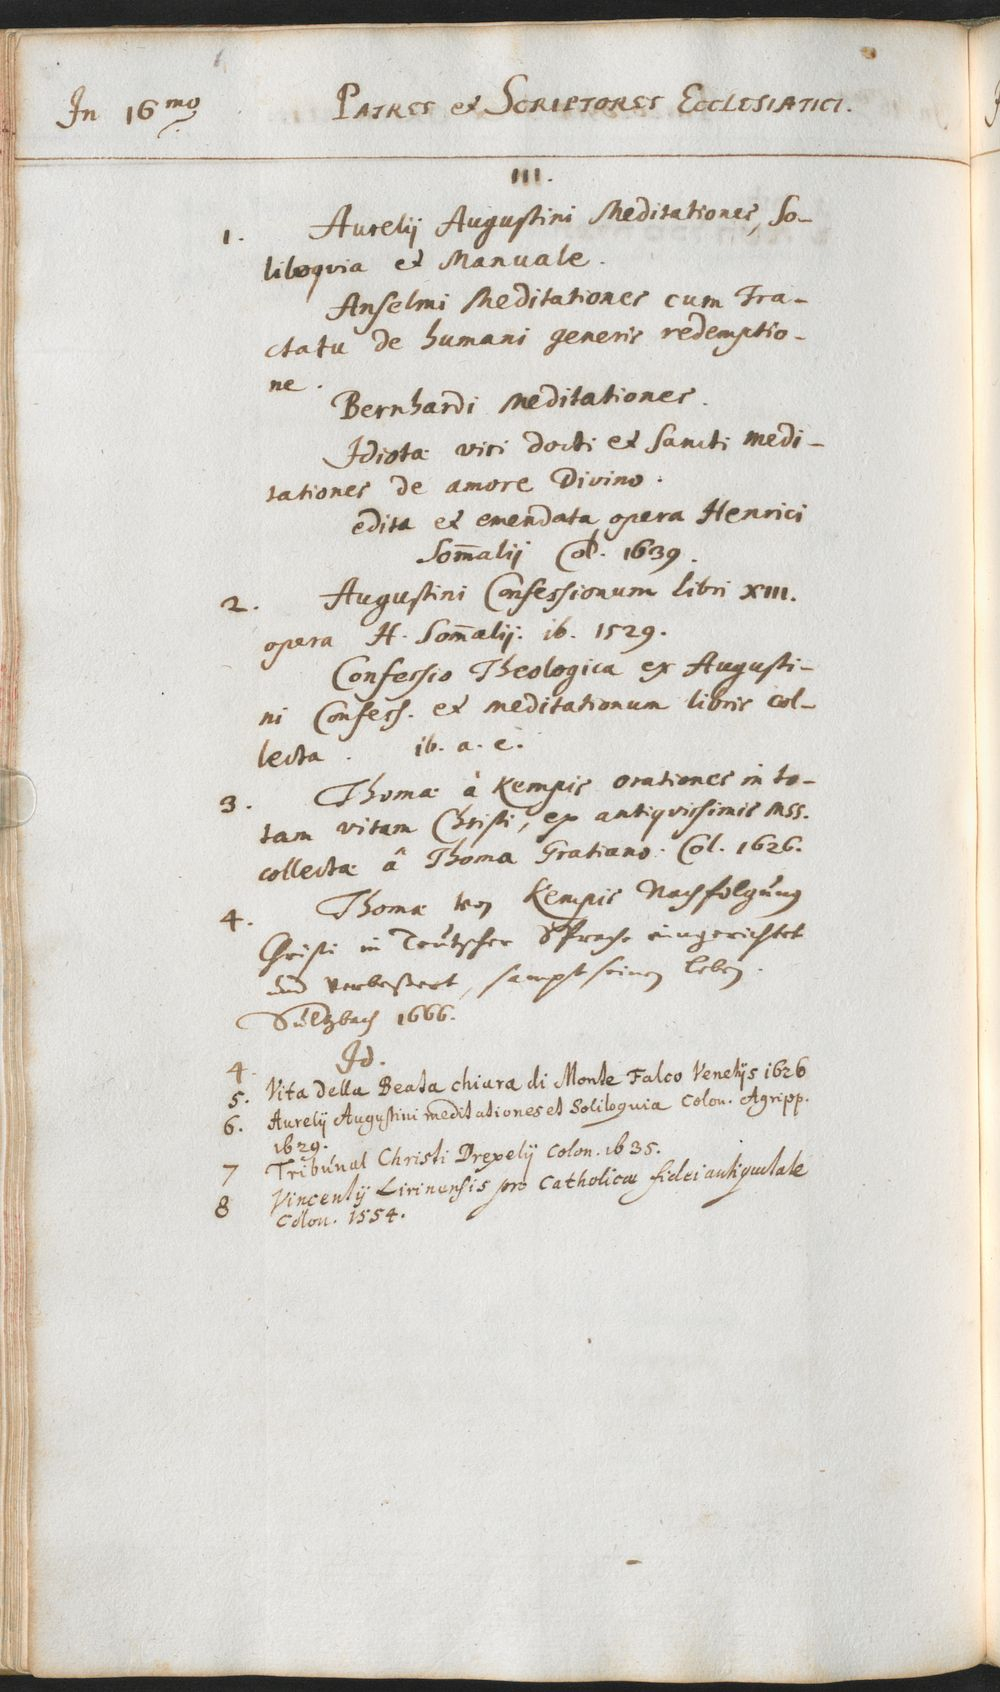 In 16mo. PATRES et SCRIPTORES ECCLESIASTICI.
III.
1. Aurelij Augustini Meditationes, So-
liloquia et Manuale.
Anselmi Meditationes cum Tra-
ctatu de humani generis redemptio-
ne.
Bernhardi Meditationes.
Idiotæ viri docti et Sancti medi-
tationes de amore Divino.
edita et emendata opera Henrici
Som̅alij Col. 1639.
2. Augustini Confessionum libri XIII.
opera H. Som̅alij. ib. 1529.
Confessio Theologica ex Augusti-
ni Confess. et meditationum libris col-
lecta. ib. a. e.
3. Thomæ à Kempis orationes in to-
tam vitam Christi, ex antiqvissimis mss.
collectæ â Thoma Gratiano. Col. 1626.
4. Thomæ von Kempis Nachfolgung
Christi in Teutscher Sprache eingerichtet
und verbessert, sampt seinen leben.
Sultzbach 1666.
4. Id.
5. Vita della Beata chiara di Monte Falco Venetijs 1626
6. Aurelij Augustini meditationes et Soliloquia Colon. Agripp.
1629.
7 Tribunal Christi Drexelij Colon. 1635.
8 Vincentij Lirinensis pro Catholicæ fidei antiquitate
Colon. 1554.